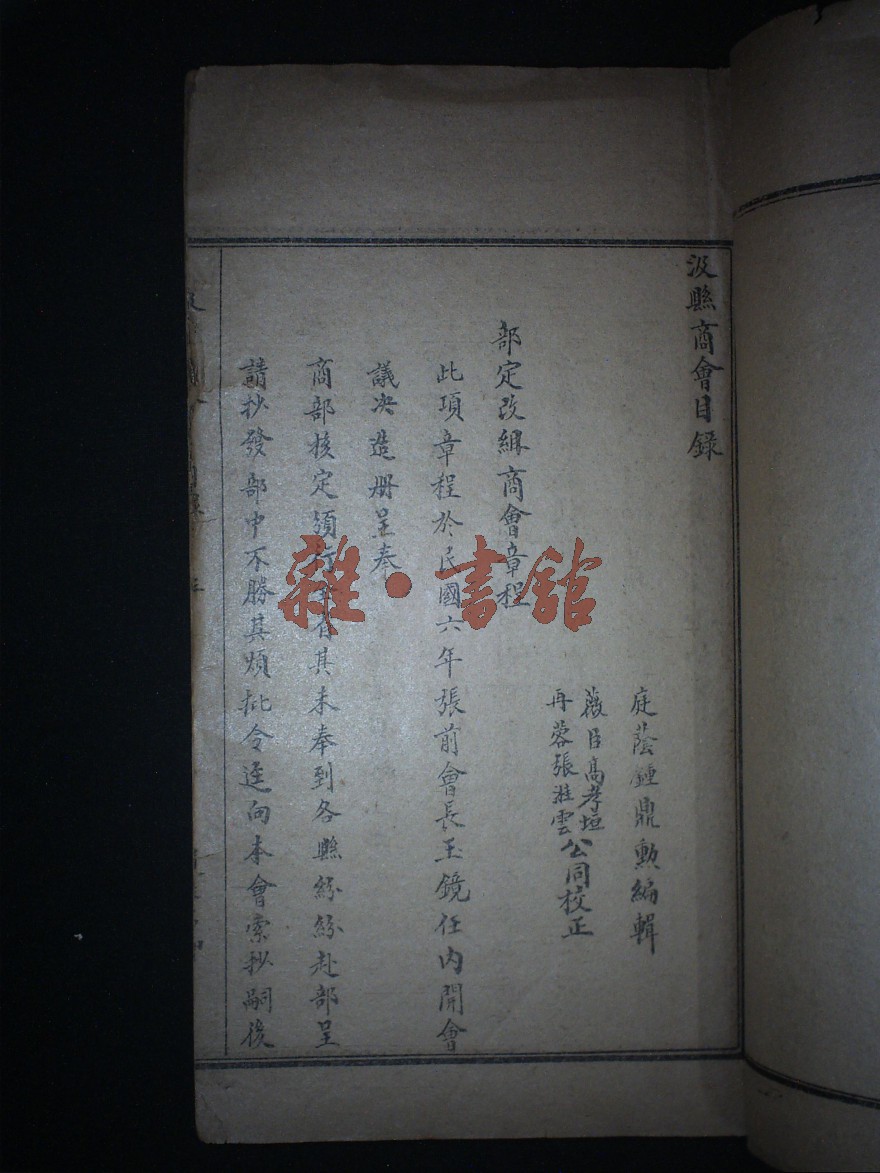 汲縣商會目錄
庭蔭鍾鼎勳編輯
薇臣高孝垣
再蓉張淮雲
公同校正
部定改組商會章程
此項章程於民國六年張前會長玉鏡任內開會
議決造册呈奉
商部核定須行 其未奉到各縣紛紛赴部呈
請抄發部中不勝其煩批令逕向本會索抄嗣後
雜·書館